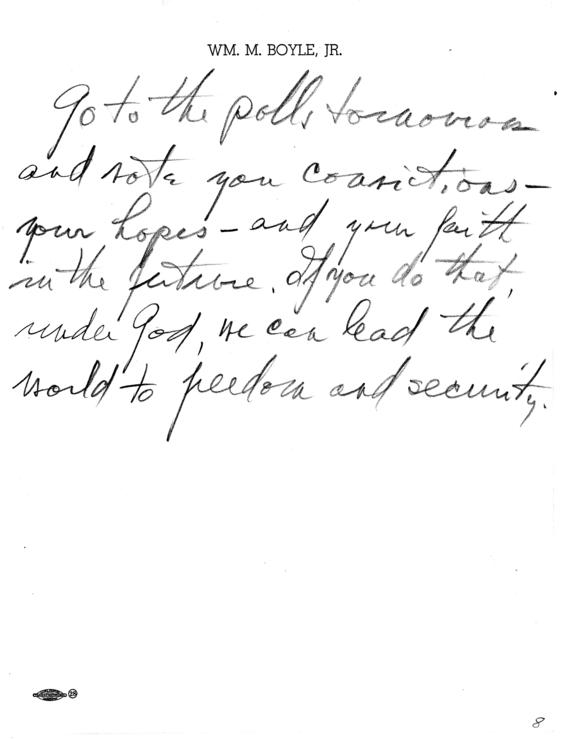 WM. M. BOYLE, JR.
Go to the polls tomorrow
and vote you convictions –
your hopes – and your faith
in the future. If you do that,
under God, we can lead the
world to freedom and security.
28
8